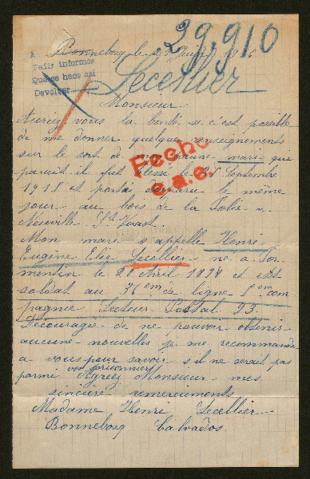 Bonnebosq le 2 Juin
29,910
Pedir informes
Que se hace aqui
Devolver
Lecellier
Monsieur
Auriez vous la bonté si c'est possible
de me donner quelque renseignements
sur le sort de mon jeune mari que
parait il fut blessé le Septembre
1915 et porté disparu le même
jour au bois de la Folie
Neuville St Vaast
Mon mari s'appelle Henri
Eugène Lecellier né à For
mentin le 28 Avril 1874 et est
soldat au 76em de ligne 8em com
pagnie Secteur Postal 93
Découragée de ne pouvoir obtenir
aucune nouvelles je me recommande
a vous pour savoir s'il ne serait pas
parmi vos prisonniers
Agréez Monsieur mes
sincère remerciements
Madame Henri Lecellier
Bonnebosq Calvados
Fecho